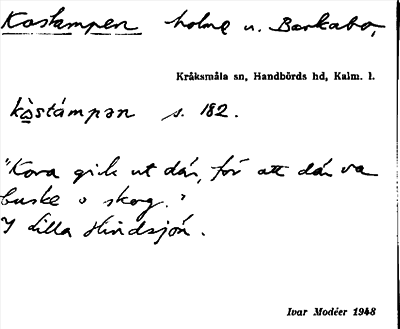 Kostampen holme n. Barkabo,
Kråksmåla sn, Handbörds hd, Kalm. l.
kòstámpən s. 182.
"Kora gick ut där, för att där va
buske o skog."
I Lilla Hindsjön.
Ivar Modéer 1948